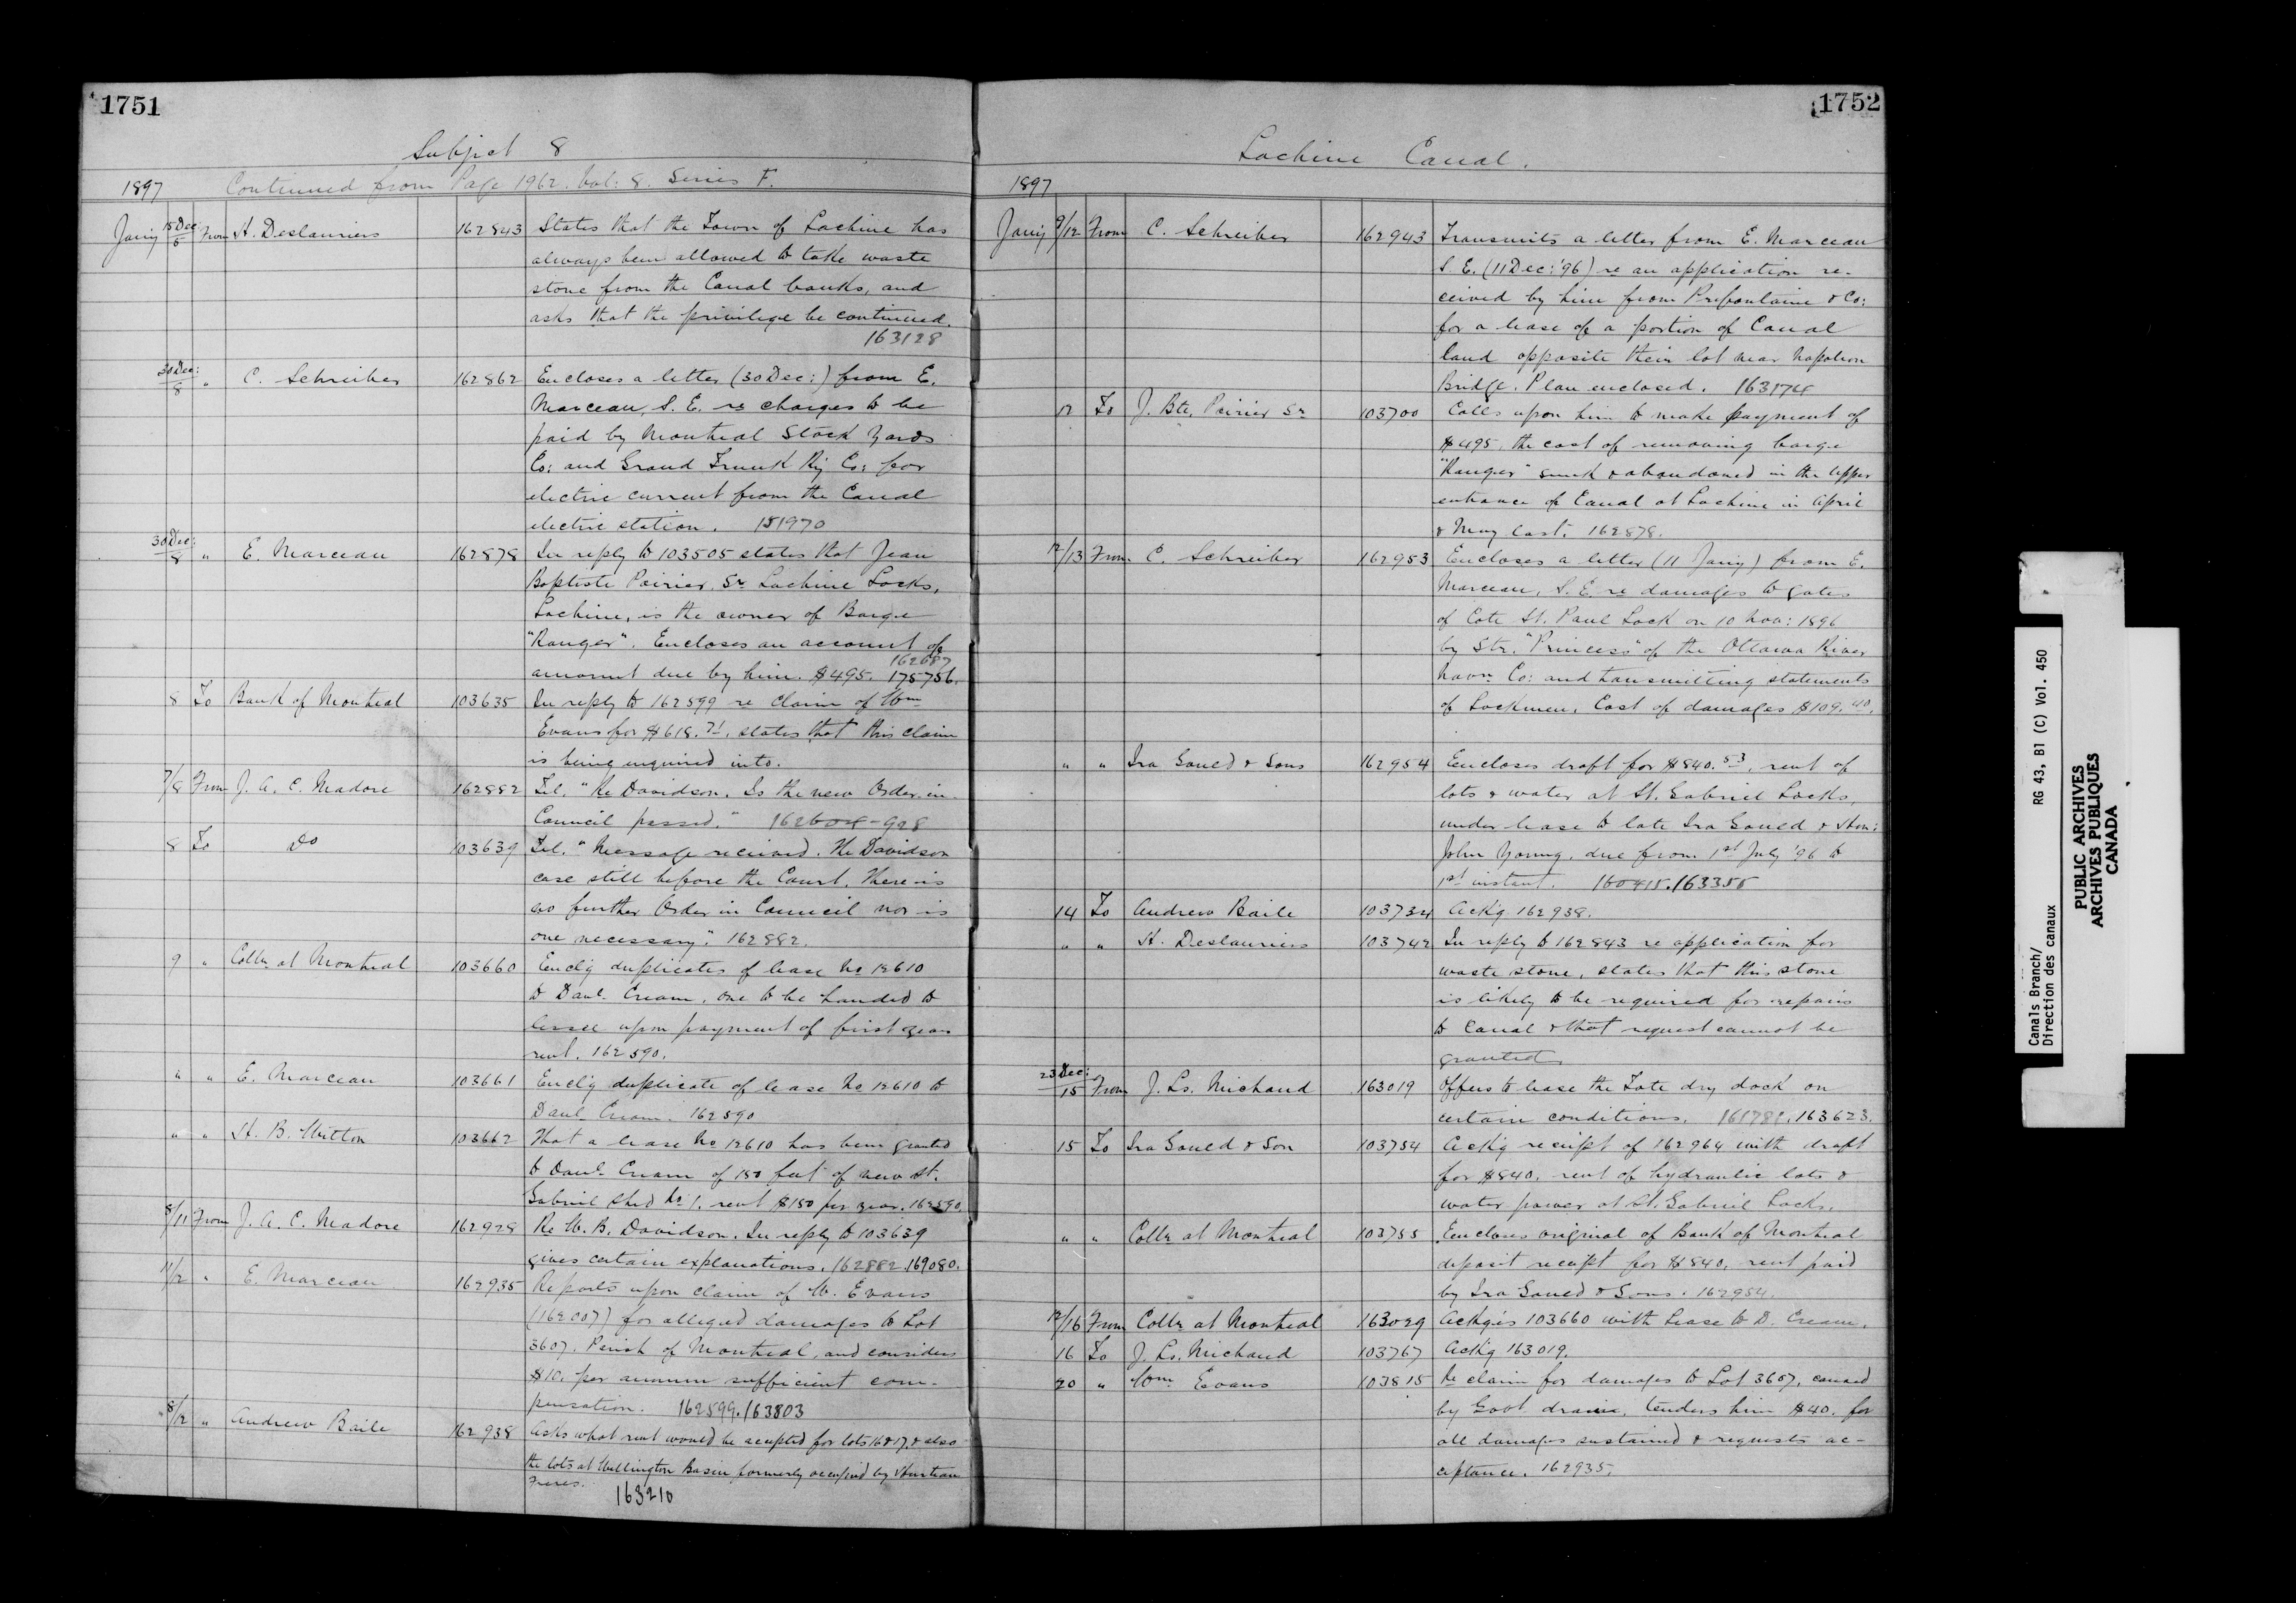 1751
Subject 8
1897 Continued from Page 1962. Vol: 8. Series F.
Jany 15 Dec:/5 From H. Deslauriers 162843 States that the Town of Lachine has
always been allowed to take waste
stone from the Canal banks, and
asks that the privilege be continued.
163128
30 Dec:/8 " C. Schreiber 162862 Encloses a letter (30 Dec:) from E.
Marceau, S. E. re charges to be
paid by Montreal Stock Yards
Co: and Grand Trunk Ry Co: for
electric current from the Canal
electric station. 151970
30 Dec:/8 " E. Marceau 162878 In reply to 103505 states that Jean
Baptiste Poirier, Sr. Lachine Locks,
Lachine, is the owner of Barge
"Ranger". Encloses an account of
162687
amount due by him. $495. 175756.
8 To Bank of Montreal 103635 In reply to 162599 re Claim of Wm
Evans for $618.71, states that this claim
is being enquired into.
7/8 From J. A. C. Madore 162882 Tel. "Re Davidson. Is the new Order in
Council passed." 162604-928
8 To Do 103639 Tel. "Message received. The Davidson
case still before the Court. There is
no further Order in Council nor is
one necessary". 162882.
9 " Collr at Montreal 103660 Enclg duplicates of lease No 12610
to Danl. Cream, one to be handed to
lessee upon payment of first year
rent. 162590.
" " E. Marceau 103661 Enclg duplicate of lease No 12610 to
Danl Cream. 162590
" " H. B. Witton 103662 That a lease No 12610 has been granted
to Danl. Cream of 150 feet of new St.
Gabriel Shed No 1, rent $150 per year. 162590.
8/11 From J. A. C. Madore 162928 Re W. B. Davidson. In reply to 103639
gives certain explanations. 162882.169080.
11/12 " E. Marceau 162935 Reports upon claim of W. Evans
(162007) for alleged damages to Lot
3607. Parish of Montreal, and considers
$10. per annum sufficient com-
pensation. 162599.163803
8/12 " Andrew Baile 162938 Asks what rent would be accepted for lots 16 & 17, & also
the lots at Wellington Basin formerly occupied by
Freres. 163210
1752
Lachine Canal.
1897
Jany 9/12 From C. Schreiber 162943 Transmits a letter from E. Marceau
S. E. (11 Dec: '96) re an application re-
ceived by him from Prefontaine & Co:
for a lease of a portion of Canal
land opposite their lot near Napoleon
Bridge. Plan enclosed. 163174
12 To J. Bte. Poirier Sr 103700 Calls upon him to make payment of
$495, the cost of removing barge
"Ranger" sunk & abandoned in the upper
entrance of Canal at Lachine in April
& May last. 162878.
12/13 From C. Schreiber 162953 Encloses a letter (11 Jany) from E.
Marceau, S. E. re damages to gates
of Cote St. Paul Lock on 10 Nov: 1896
by Str. "Princess" of the Ottawa River
Navn Co: and transmitting statements
of Lockmen. Cost of damages $109.40.
" " Ira Gould & Sons 162954 Encloses draft for $840.53, rent of
lots & water at St. Gabriel Locks,
under lease to late Ira Gould & Hon:
John Young, due from 1st July '96 to
1st instant. 160415.163355
14 To Andrew Baile 103734 Ackg 162938.
" " H. Deslauriers 103742 In reply to 162843 re application for
waste stone, states that this stone
is likely to be required for repairs
to Canal & that request cannot be
granted
23 Dec:/15 From J. Ls. Michaud 163019 Offers to lease the Tate dry dock on
certain conditions. 161781.163623.
15 To Ira Gould & Son 103754 Ackg receipt of 162964 with draft
for $840. rent of hydraulic lots &
water power at St. Gabriel Locks.
" " Collr at Montreal 103755 Encloses original of Bank of Montreal
deposit receipt for $840. rent paid
by Ira Gould & Sons. 162954.
12/16 From Collr at Montreal 163029 Ackgs 103660 with Lease to D. Cream.
16 To J. Ls. Michaud 103767 Ackg 163019.
20 " Wm. Evans 103815 Re claim for damages to Lot 3607, caused
by Govt drain, tenders him $40. for
all damages sustained & requests ac-
ceptance. 162935.
Canals Branch/
Direction des canaux
RG 43, B1 (C) Vol. 450
PUBLIC ARCHIVES
ARCHIVES PUBLIQUES
CANADA